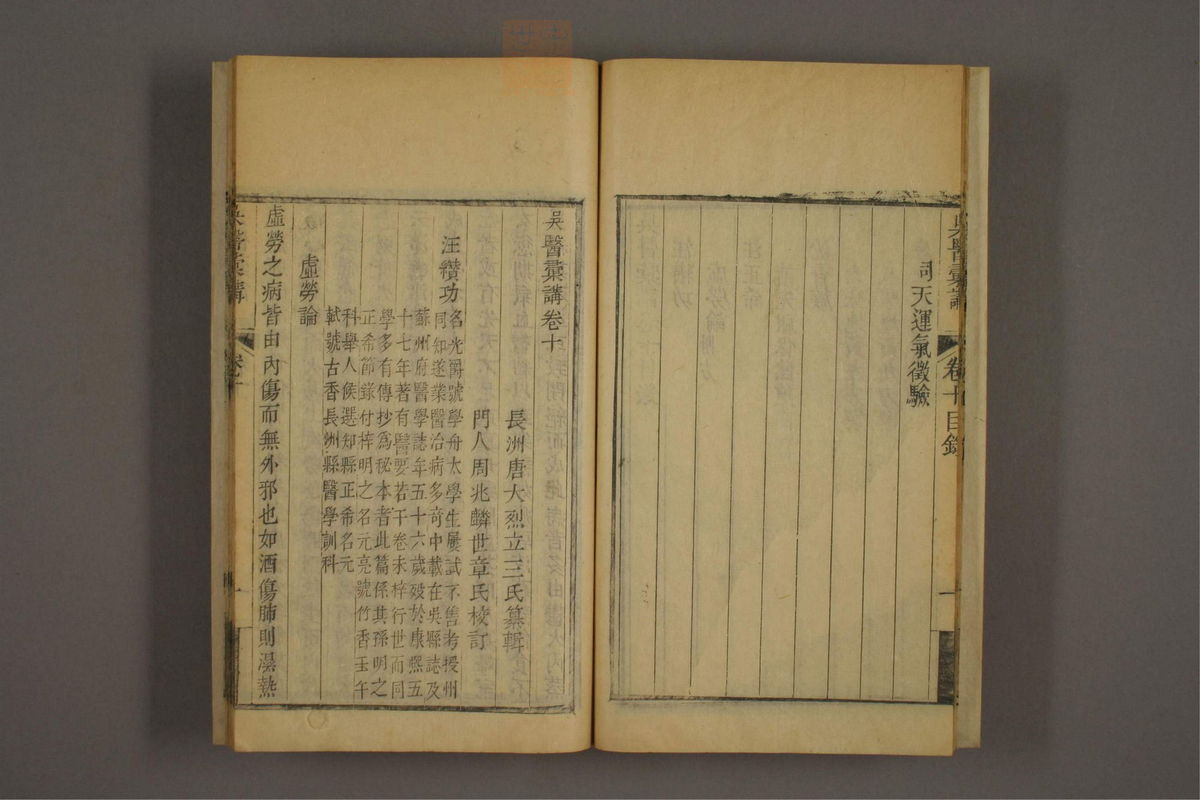 司天運氣徵驗
吳醫彙講 卷十目錄 一
吳醫彙講卷十
長洲唐大烈立三氏纂輯
門人周兆麟世章氏校訂
汪纘功
名光爵號學舟太學生屢試不售考授州
同知遂業醫治病多奇中載在吳縣誌及
蘇州府醫學誌年五十六歲歿於康熙五
十七年著有醫要若干卷未梓行世而同
學多有傳抄爲秘本者此篇係其孫明之
正希節錄付梓明之名元亮號竹香壬午
科舉人候選知縣正希名元
軾號古香長洲縣醫學訓科
虛勞論
虛勞之病皆由內傷而無外邪也如酒傷肺則濕熱
吳醫彙講 卷十 一